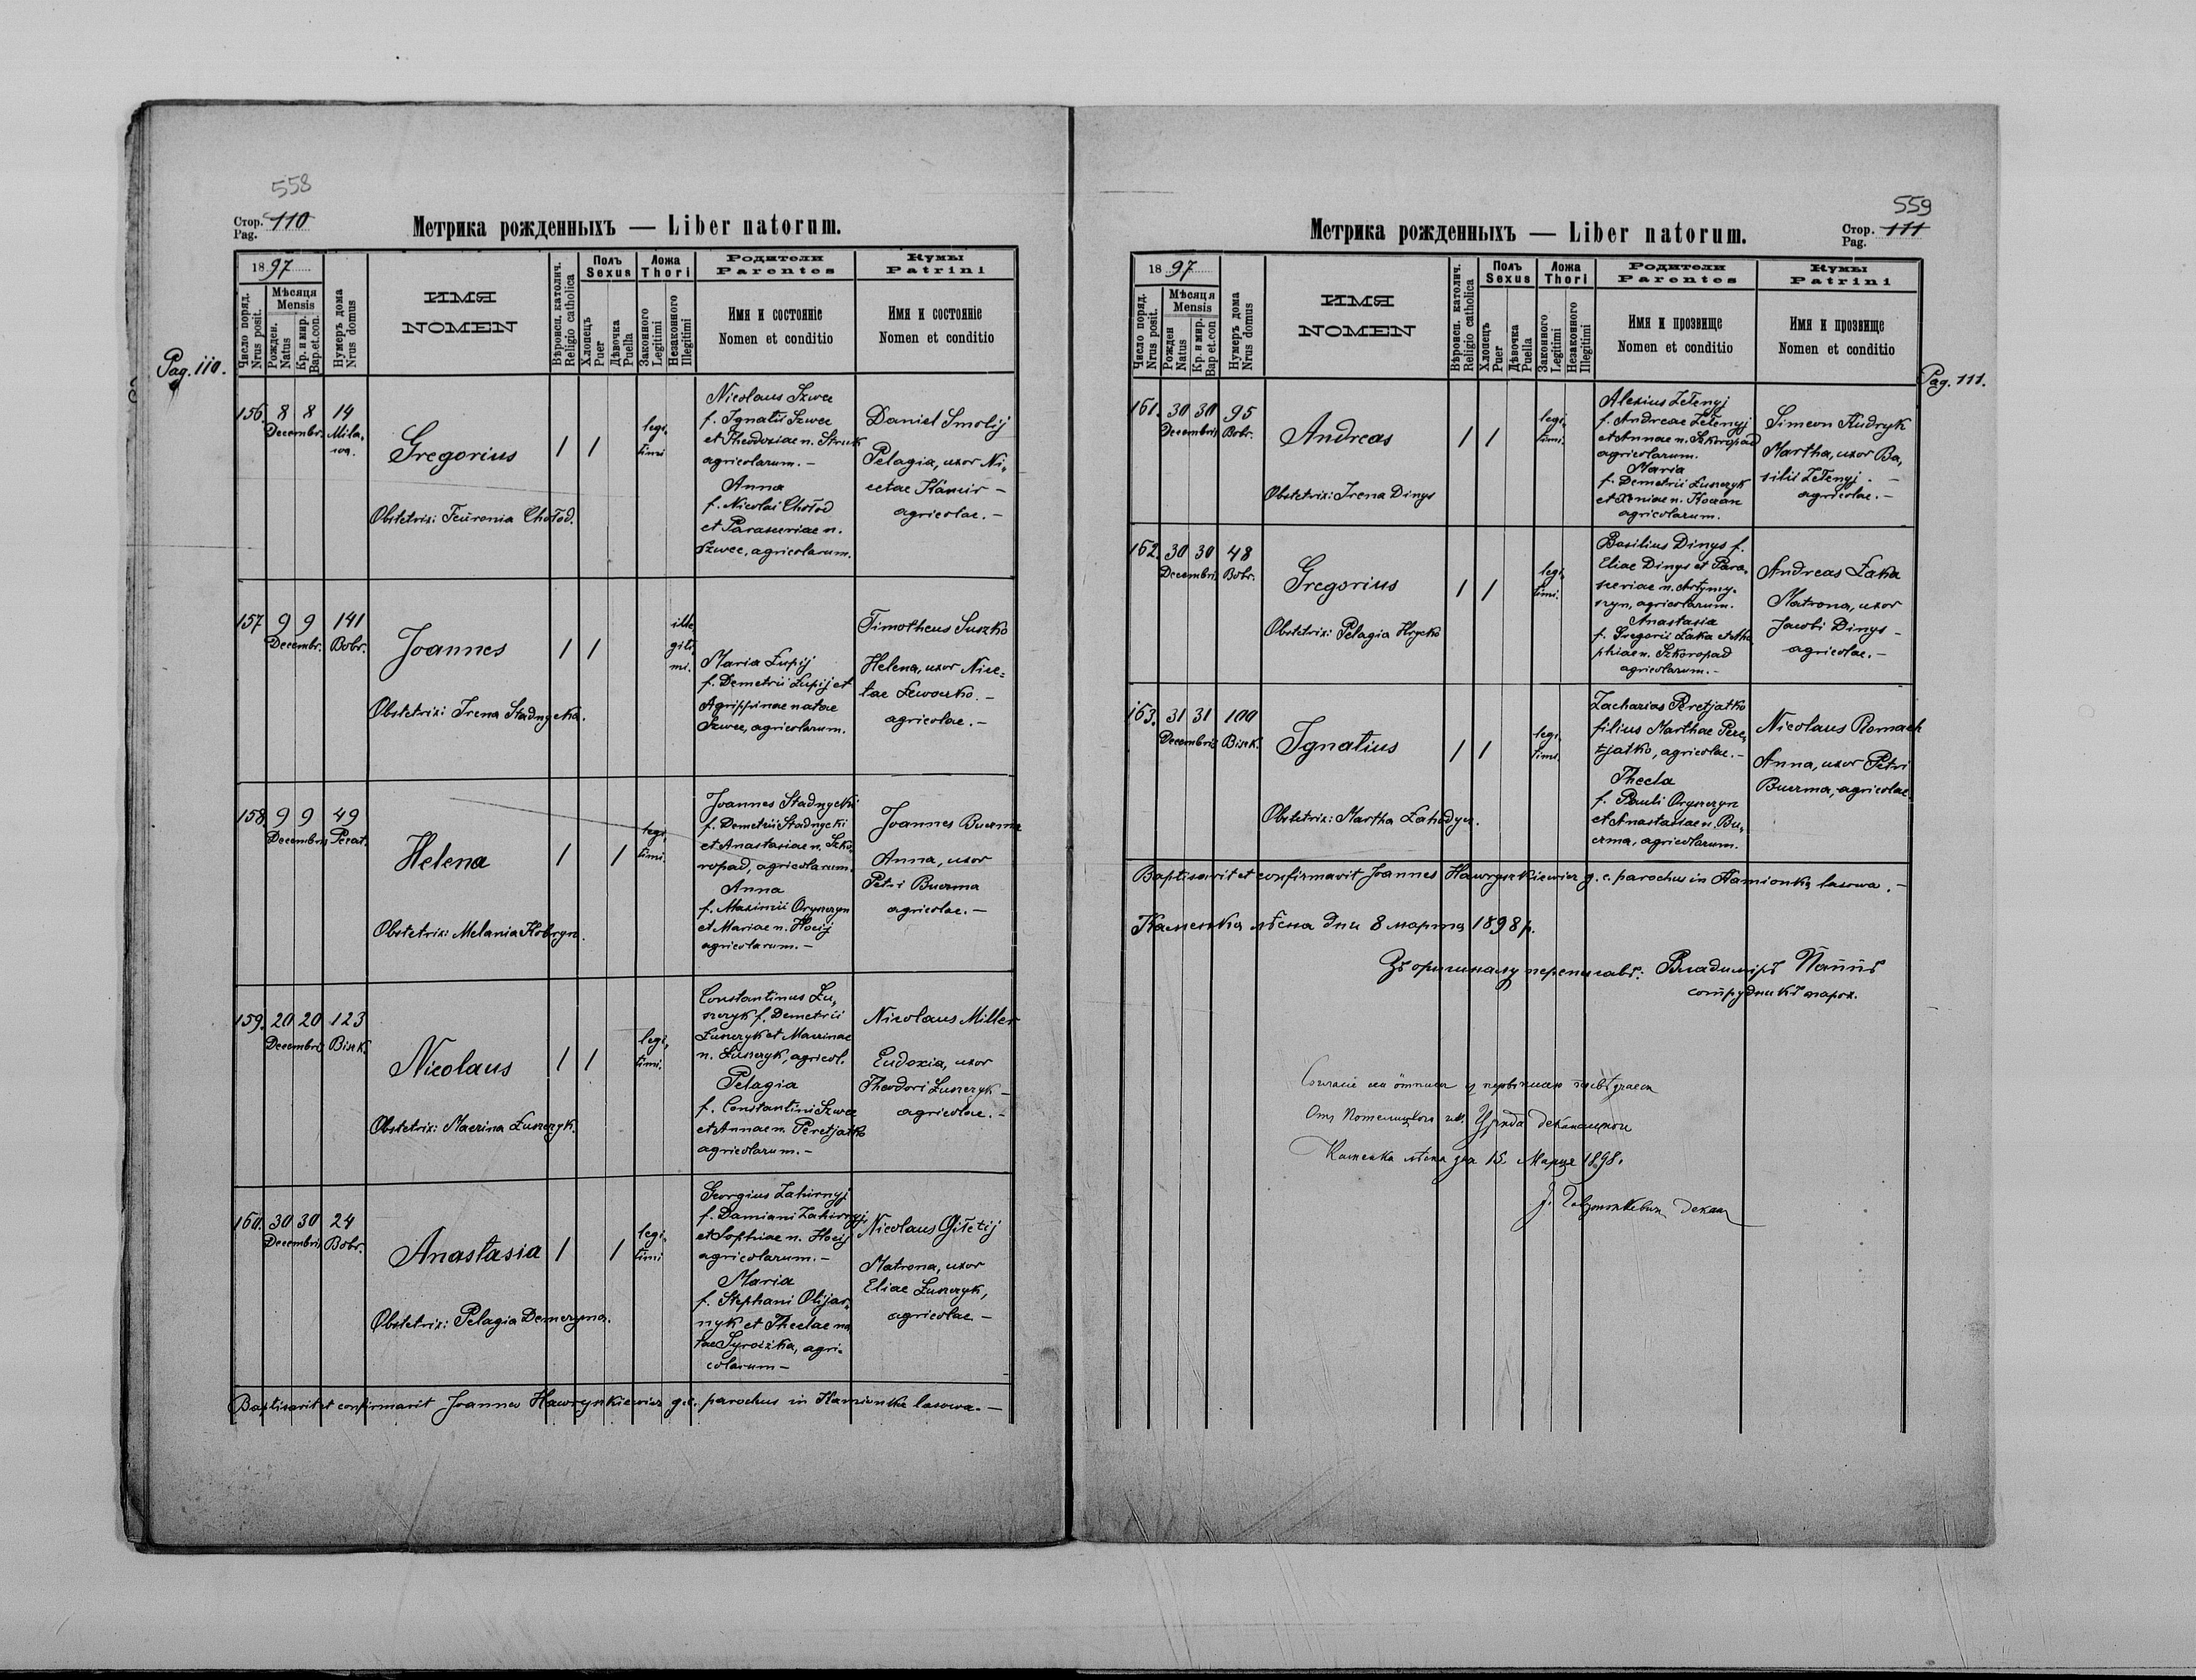 558
Стор. 110
Pag.
Метрика рожденныхъ — Liber natorum.
Pag. 110.
1897
Число поряд.
Nrus posit.
Мѣсяця
Mensis
Рожден.
Natus
Кр. и мир.
Bap.et.con.
Нумеръ дома
Nrus domus
ИМЯ
NOMEN
Вѣроисп. католич.
Religio catholica
Полъ
Sexus
Хлопецъ
Puer
Дѣвочка
Puella
Ложа
Thori
Законного
Legitimi
Незаконного
Illegitimi
Родители
Parentes
Имя и состоянiе
Nomen et conditio
Кумы
Patrini
Имя и состоянiе
Nomen et conditio
156. 8 8 14
Decembr. Mila-
Gregorius
1 1
legi-
timi
Obstetrix: Feuronia Chołod.
Nicolaus Szwec
f. Ignatii Szwec
et Theodosiae n. Struk
agricolarum. –
Anna
f. Nicolai Chołod
et Parasceviae n.
Szwec, agricolarum.
Daniel Smolij
Pelagia, uxor Ni-
cetae Kamir –
agricolae. –
157 9 9 141
Decembr. Bobr.
Joannes
1 1
ille-
giti-
mi.
Obstetrix: Irena Stadnycka.
Maria Łupij
f. Demetrii Łupij et
Agrippinae natae
Szwec, agricolarum.
Timotheus Suszko
Helena, uxor Nice-
tae Lewoczko. –
agricolae. –
158 9 9 49
Decembris Pecat.
Helena
1 1
legi-
timi.
Obstetrix: Melania Kobryn.
Joannes Stadnycki
f. Demetrii Stadnycki
et Anastasiae n. Szko-
ropad, agricolarum.
Anna
f. Maximii Oryszczyn
et Mariae n. Hocij
agricolarum. –
Joannes Buczma
Anna, uxor
Petri Buczma
agricolae. –
159. 20 20 123
Decembris Bisk.
Nicolaus
1 1
legi-
timi.
Obstetrix: Macrina Łuszczyk.
Constantinus Łu-
szczyk f. Demetrii
Łuszczyk et Macrinae
n. Łuszczyk, agricol.
Pelagia
f. Constantini Szwec
et Annae n. Peretjatko
agricolarum. –
Nicolaus Miller
Eudoxia, uxor
Theodori Łuszczyk –
agricolae. –
160. 30 30 24
Decembris Bobr.
Anastasia
1 1
legi-
timi
Obstetrix: Pelagia Demczyna.
Georgius Zahirnyj
f. Damiani Zahirnyj
et Sophiae n. Hocij
agricolarum. –
Maria
f. Stephani Olijar-
nyk et Theclae na-
tae Syroiżka, agri-
colarum –
Nicolaus Giłetij
Matrona, uxor
Eliae Łuszczyk,
agricolae –
Baptisavit et confirmavit Joannes Hawryszkiewicz g.c. parochus in Kamionka lasowa. –
559
Стор. 111
Pag.
Метрика рожденныхъ — Liber natorum.
Pag. 111.
1897
Число поряд.
Nrus posit.
Мѣсяця
Mensis
Рожден
Natus
Кр. и мир.
Bap et.con
Нумеръ дома
Nrus domus
ИМЯ
NOMEN
Вѣроисп. католич.
Religio catholica
Полъ
Sexus
Хлопецъ
Puer
Дѣвочка
Puella
Ложа
Thori
Законного
Legitimi
Незаконного
Illegitimi
Родители
Parentes
Имя и прозвище
Nomen et conditio
Кумы
Patrini
Имя и прозвище
Nomen et conditio
161. 30 30 95
Decembris Bobr.
Andreas
1 1
legi-
timi.
Obstetrix: Irena Dinys
Alexius Zełenyj
f. Andreae Zełenyj
et Annae n. Szkoropad
agricolarum.
Maria
f. Demetrii Łuszczyk
et Xeniae n. Koczan
agricolarum.
Simeon Kudryk
Martha, uxor Ba-
silii Zełenyj. –
agricolae. –
162. 30 30 48
Decembris Bobr.
Gregorius
1 1
legi-
timi.
Obstetrix: Pelagia Hrycko
Basilius Dinys f.
Eliae Dinys et Para-
sceviae n. Artymy-
szyn, agricolarum.
Anastasia
f. Gregorii Łaka et
phiae n. Szkoropad
agricolarum. –
Andreas Łaka
Matrona, uxor
Jacobi Dinys –
agricolae. –
163. 31 31 100
Decembris Bisk.
Ignatius
1 1
legi-
timi.
Obstetrix: Martha Zahodyn.
Zacharias Peretjatko
filius Marthae Pere-
tjatko, agricolae. –
Thecla
f. Pauli Oryszczyn
et Anastasiae n. Bu-
czma, agricolarum.
Nicolaus Romach
Anna, uxor Petri
Buczma, agricolae.
Baptisavit et confirmavit Joannes Hawryszkiewicz g. c. parochus in Kamionka lasowa. –
Каменка лѣсна дни 8 марта 1898 р.
Зъ оригиналу переписавъ: Владимiръ
сотрудникъ парох.
деканального
Каменка лѣсна дня 15. Марця 1898.
декан